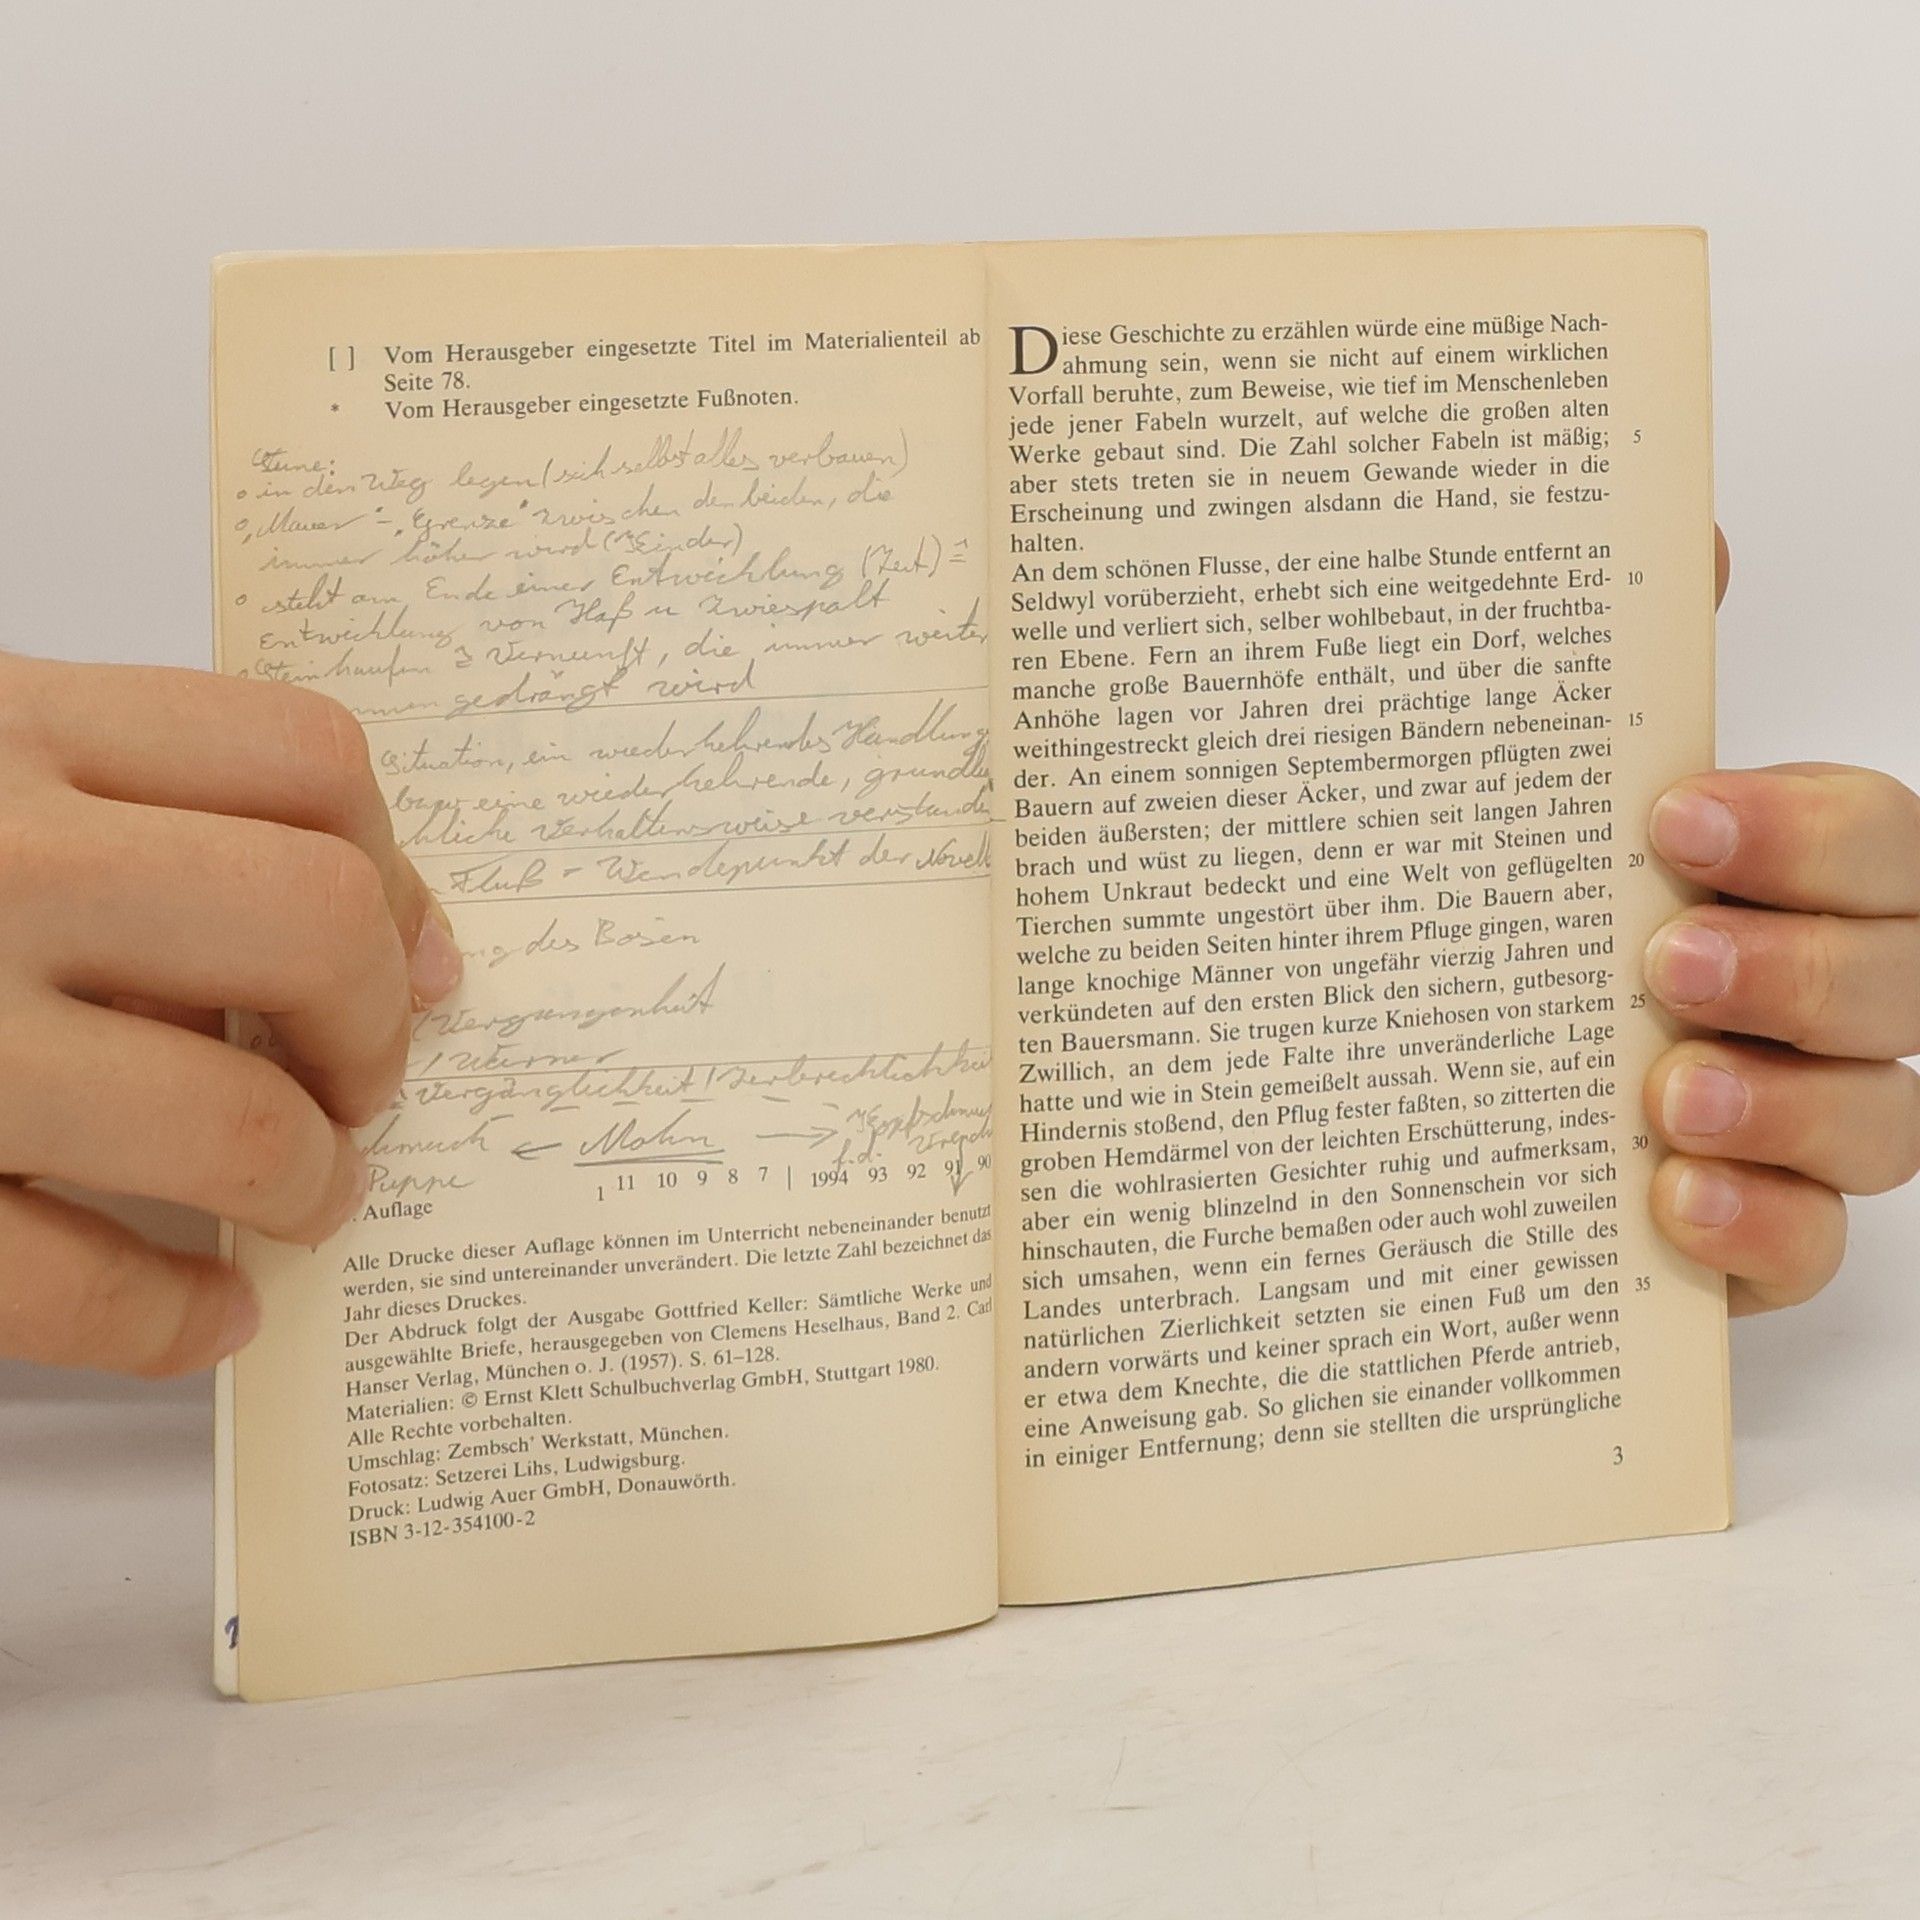 [ ] Vom Herausgeber eingesetzte Titel im Materialienteil ab
Seite 78.
* Vom Herausgeber eingesetzte Fußnoten.
in den Weg legen (sich selbst alles verbauen)
"Mauer" - "Grenze" zwischen den beiden, die
immer höher wird
steht am Ende einer Entwicklung (Zeit) ≙
Entwicklung von Haß u Zwiespalt
Steinhaufen ≙ Vernunft, die immer weiter
gedrängt wird
Situation, ein wiederkehrendes Handlung
bzw eine wiederkehrende,
Verhaltensweise
Fluß - Wendepunkt der
des Bösen
Vergangenheit
Vergänglichkeit /
← Mohn →
Puppe
1 11 10 9 8 7 | 1994 93 92 91 90
. Auflage
Alle Drucke dieser Auflage können im Unterricht nebeneinander benutzt
werden, sie sind untereinander unverändert. Die letzte Zahl bezeichnet das
Jahr dieses Druckes.
Der Abdruck folgt der Ausgabe Gottfried Keller: Sämtliche Werke und
ausgewählte Briefe, herausgegeben von Clemens Heselhaus, Band 2. Carl
Hanser Verlag, München o. J. (1957). S. 61–128.
Materialien: © Ernst Klett Schulbuchverlag GmbH, Stuttgart 1980.
Alle Rechte vorbehalten.
Umschlag: Zembsch' Werkstatt, München.
Fotosatz: Setzerei Lihs, Ludwigsburg.
Druck: Ludwig Auer GmbH, Donauwörth.
ISBN 3-12-354100-2
Diese Geschichte zu erzählen würde eine müßige Nach-
ahmung sein, wenn sie nicht auf einem wirklichen
Vorfall beruhte, zum Beweise, wie tief im Menschenleben
jede jener Fabeln wurzelt, auf welche die großen alten
Werke gebaut sind. Die Zahl solcher Fabeln ist mäßig; 5
aber stets treten sie in neuem Gewande wieder in die
Erscheinung und zwingen alsdann die Hand, sie festzu-
halten.
An dem schönen Flusse, der eine halbe Stunde entfernt an
Seldwyl vorüberzieht, erhebt sich eine weitgedehnte Erd- 10
welle und verliert sich, selber wohlbebaut, in der fruchtba-
ren Ebene. Fern an ihrem Fuße liegt ein Dorf, welches
manche große Bauernhöfe enthält, und über die sanfte
Anhöhe lagen vor Jahren drei prächtige lange Äcker
weithingestreckt gleich drei riesigen Bändern nebeneinan- 15
der. An einem sonnigen Septembermorgen pflügten zwei
Bauern auf zweien dieser Äcker, und zwar auf jedem der
beiden äußersten; der mittlere schien seit langen Jahren
brach und wüst zu liegen, denn er war mit Steinen und
hohem Unkraut bedeckt und eine Welt von geflügelten 20
Tierchen summte ungestört über ihm. Die Bauern aber,
welche zu beiden Seiten hinter ihrem Pfluge gingen, waren
lange knochige Männer von ungefähr vierzig Jahren und
verkündeten auf den ersten Blick den sichern, gutbesorg-
ten Bauersmann. Sie trugen kurze Kniehosen von starkem 25
Zwillich, an dem jede Falte ihre unveränderliche Lage
hatte und wie in Stein gemeißelt aussah. Wenn sie, auf ein
Hindernis stoßend, den Pflug fester faßten, so zitterten die
groben Hemdärmel von der leichten Erschütterung, indes-
sen die wohlrasierten Gesichter ruhig und aufmerksam, 30
aber ein wenig blinzelnd in den Sonnenschein vor sich
hinschauten, die Furche bemaßen oder auch wohl zuweilen
sich umsahen, wenn ein fernes Geräusch die Stille des
Landes unterbrach. Langsam und mit einer gewissen
natürlichen Zierlichkeit setzten sie einen Fuß um den 35
andern vorwärts und keiner sprach ein Wort, außer wenn
er etwa dem Knechte, die die stattlichen Pferde antrieb,
eine Anweisung gab. So glichen sie einander vollkommen
in einiger Entfernung; denn sie stellten die ursprüngliche
3